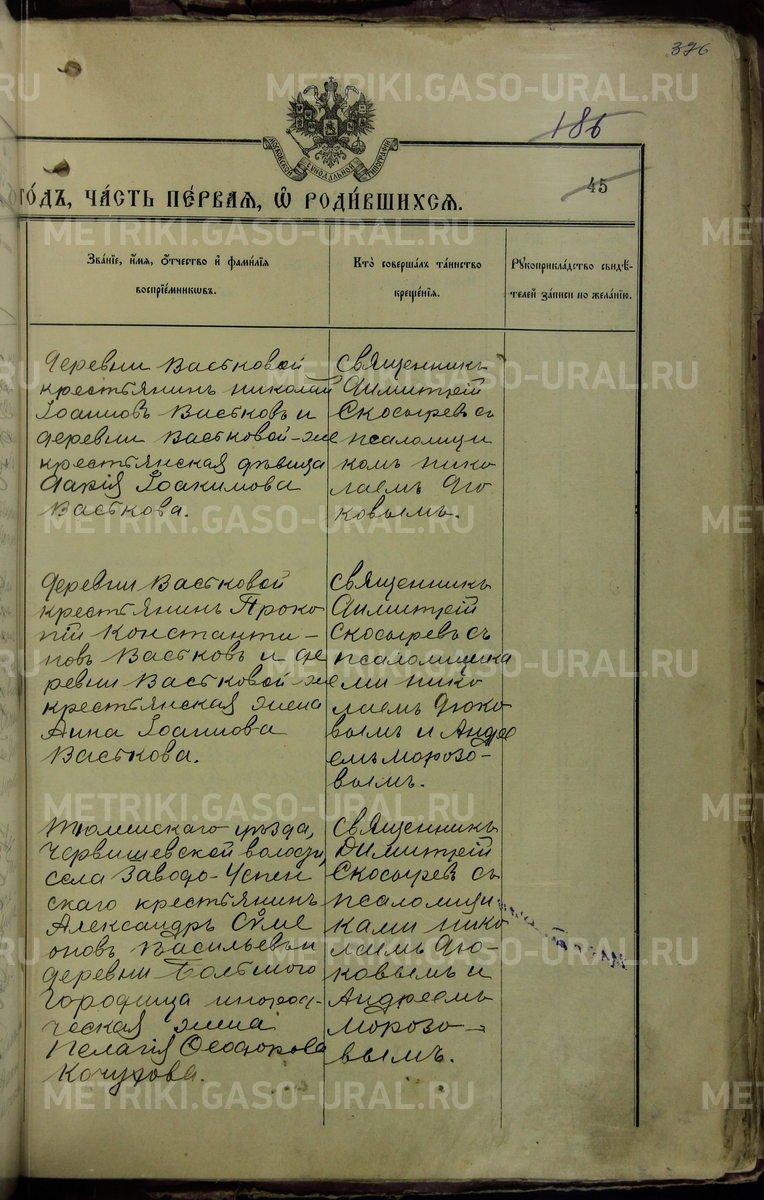 376
186
45
МОСКОВСКОЙ СѴНОДАЛЬНОЙ ТИПОГРАФІИ
ГО́ДЪ, ЧА́СТЬ ПЕ́РВАЯ, Ѡ҆ РОДИ́ВШИХСѦ.
Зва́нїе, и҆́мя, ѻ҆́тчество и҆ фами́лїя
воспрїе́мникѡвъ.
Кто̀ соверша́лъ та́инство
креще́нїя.
Рꙋкоприкла́дство свидѣ́-
телей за́писи по жела́нїю.
Деревни Вастковой
крестьянинъ Николай
Іоанновъ Вастковъ и
деревни Вастковой-же
крестьянская дѣвица
Марія Іоакимова
Васткова.
Священникъ
Димитрій
Скосыревъ съ
псаломщи
комъ Нико
лаемъ Дю
ковымъ.
Деревни Вастковой
крестьянинъ Проко
пій Константи-
новъ Вастковъ и де
ревни Вастковой-же
крестьянская жена
Анна Іоаннова
Васткова.
Священникъ
Димитрій
Скосыревъ съ
псаломщика
ми Нико
лаемъ Дюко
вымъ и Андре
емъ Морозо-
вымъ.
Тюменскаго уѣзда,
Червишевской волости,
села Заводо-Успен
скаго крестьянинъ
Александръ Сѵме
оновъ Васильевъ и
деревни Большого
Городища
ческая жена
Пелагія Ѳеодорова
Священникъ
Димитрій
Скосыревъ съ
псаломщи
ками Нико
лаемъ Дю-
ковымъ и
Андреемъ
Морозо-
вымъ.
METRIKI.GASO-URAL.RU